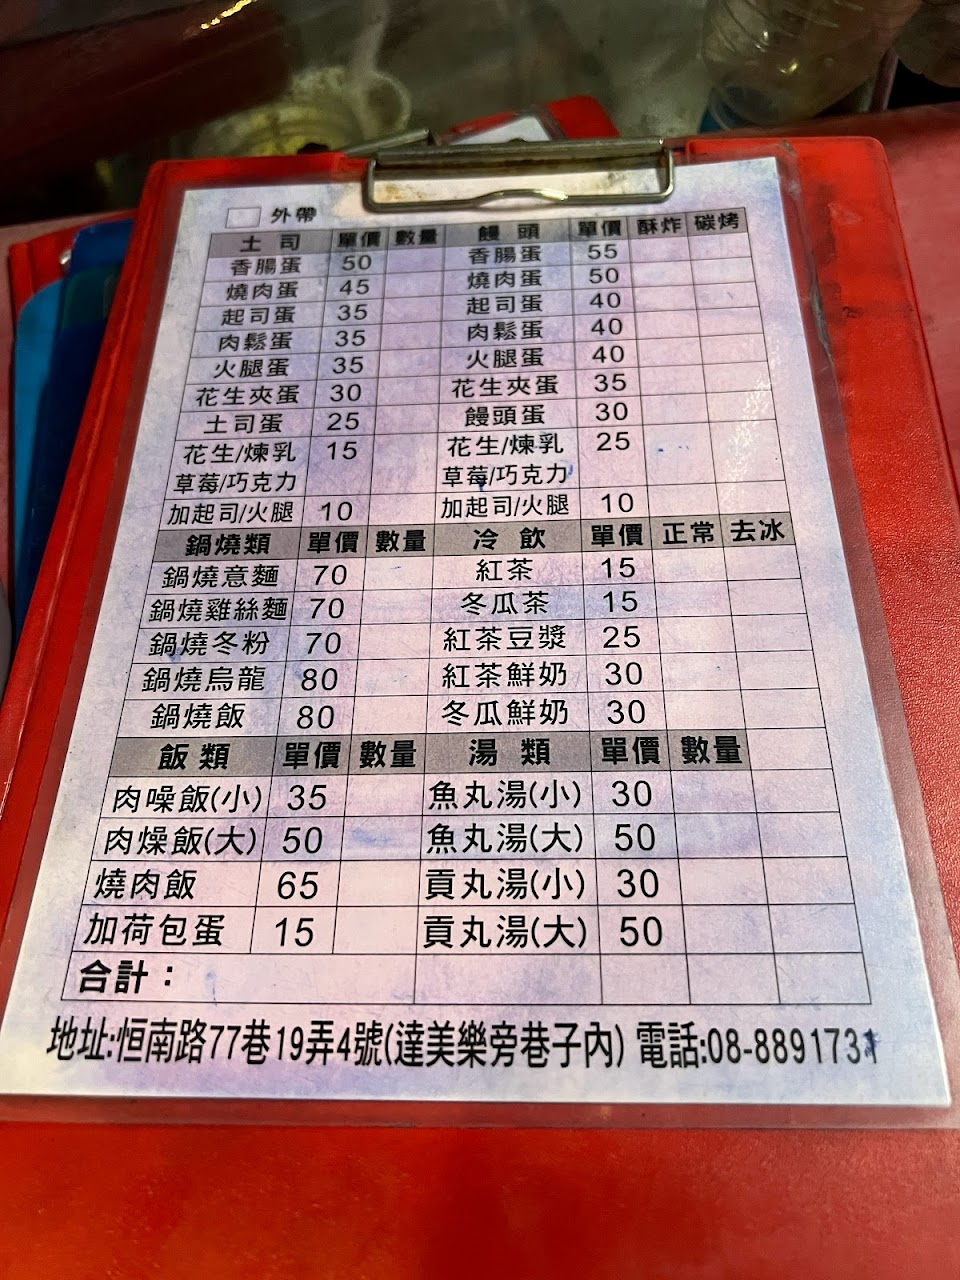 外帶
土司 單價 數量 饅頭 單價 酥炸 碳烤
香腸蛋 50 香腸蛋 55
燒肉蛋 45 燒肉蛋 50
起司蛋 35 起司蛋 40
肉鬆蛋 35 肉鬆蛋 40
火腿蛋 35 火腿蛋 40
花生夾蛋 30 花生夾蛋 35
土司蛋 25 饅頭蛋 30
花生/煉乳 15 花生/煉乳 25
草莓/巧克力 草莓/巧克力
加起司/火腿 10 加起司/火腿 10
鍋燒類 單價 數量 冷飲 單價 正常 去冰
鍋燒意麵 70 紅茶 15
鍋燒雞絲麵 70 冬瓜茶 15
鍋燒冬粉 70 紅茶豆漿 25
鍋燒烏龍 80 紅茶鮮奶 30
鍋燒飯 80 冬瓜鮮奶 30
飯類 單價 數量 湯類 單價 數量
肉噪飯(小) 35 魚丸湯(小) 30
肉燥飯(大) 50 魚丸湯(大) 50
燒肉飯 65 貢丸湯(小) 30
加荷包蛋 15 貢丸湯(大) 50
合計：
地址:恒南路77巷19弄4號(達美樂旁巷子內) 電話:08-8891731